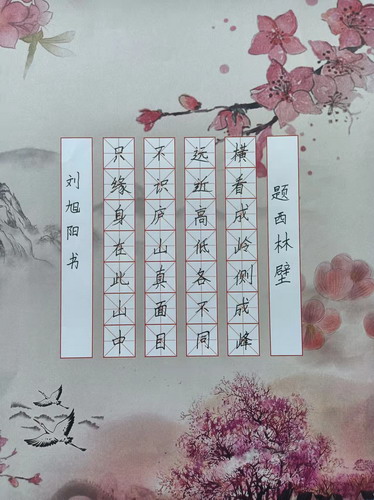 题西林壁
横看成岭侧成峰
远近高低各不同
不识庐山真面目
只缘身在此山中
刘旭阳书